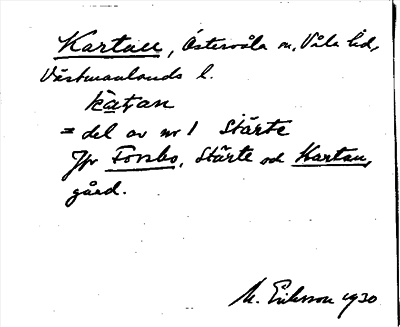 Kartan, Östervåla sn, Våla hd,
Västmanlands l.
ka̲ṭan
= del av nr 1 Stärte
Jfr Forsbo, Stärte och Kartan,
gård.
M. Eriksson 1930